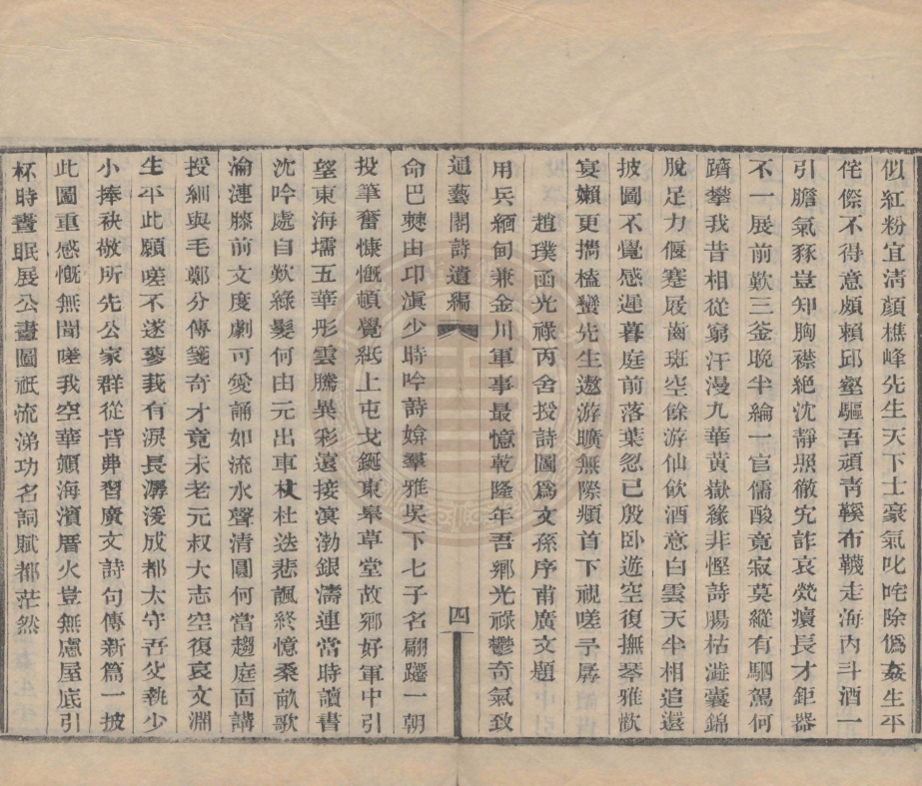 似紅粉宜清顏樵峰先生天下士豪氣叱咤除僞姦生平
侘傺不得意頗賴邱壑驅吾頑青鞵布韈走海內斗酒一
引膽氣豩豈知胸襟絕沈靜照徹究詐哀煢癏長才鉅器
不一展前歎三釜晚半綸一官儒酸竟寂莫縱有駟駕何
躋攀我昔相從窮汗漫九華黃嶽緣非慳詩腸枯澁囊錦
脫足力偃蹇屐齒斑空餘游仙飲酒意白雲天半相追還
披圖不覺感遲暮庭前落葉忽已殷卧遊空復撫琴雅歡
宴嬾更攜榼蠻先生遨游曠無際頫首下視嗟予孱
趙璞函光祿丙舍授詩圖爲文孫序甫廣文題
用兵緬甸兼金川軍事最憶乾隆年吾鄉光祿鬱奇氣致
通藝閣詩遺編
四
命巴僰由卭滇少時吟詩媕羣雅吳下七子名翩躚一朝
投筆奮慷慨頓覺紙上屯戈鋋東皋草堂故鄉好軍中引
望東海壖五華彤雲騰異彩遠接溟渤銀濤連當時讀書
沈吟處自歎綠髮何由元出車杕杜迭悲諷終憶桑畝歌
淪漣膝前文度劇可愛誦如流水聲清圓何當趨庭面講
授細與毛鄭分傳箋奇才竟未老元叔大志空復哀文淵
生平此願嗟不遂蓼莪有淚長潺湲成都太守吾父執少
小捧袂敬所先公家群從皆弗習廣文詩句傳新篇一披
此圖重感慨無聞嗟我空華顚海濱厝火豈無慮屋底引
杯時晝眠展公畫圖祇流涕功名詞賦都茫然